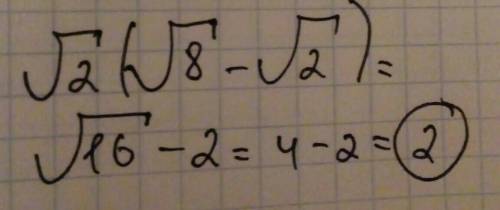 √2(√8-√2)=
√16-2=4-2=2